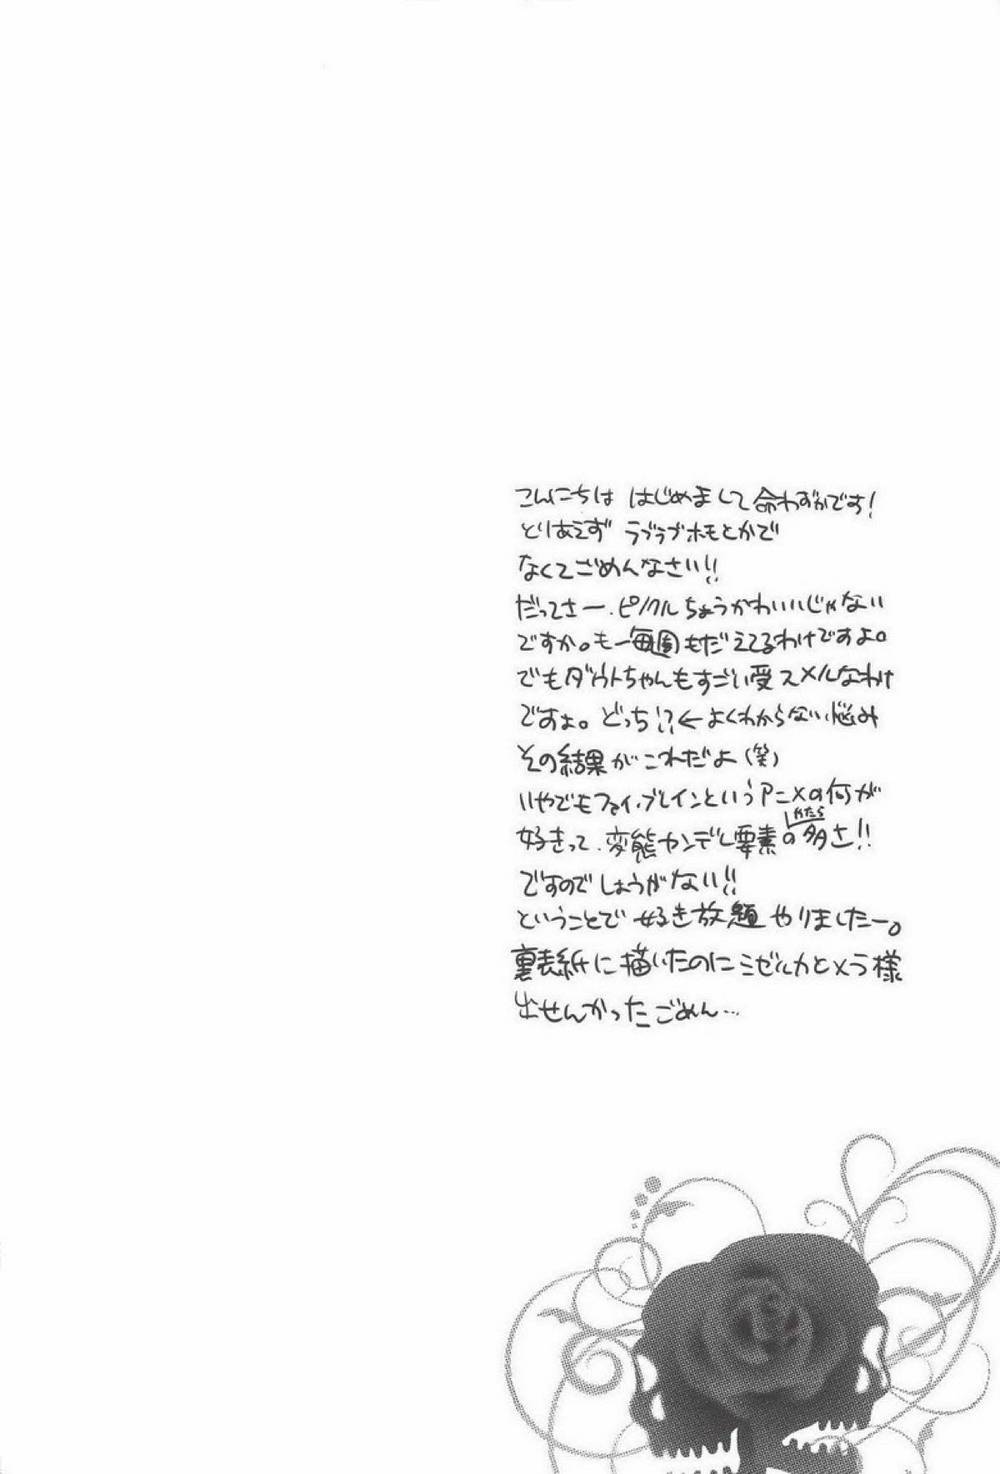 こんにちは はじめまして 命わずかです!
とりあえず ラブラブホモとかで
なくてごめんなさい!!
だってさー、ピノクルちょうかわいいじゃない
ですか。も一毎週もだえてるわけですよ。
でもダウトちゃんもすごい受スメルなわけ
ですよ。どっち!?←よくわからない悩み
その結果がこれだよ(笑)
いやでもファイ・ブレインというアニメの何が
好きって、変態ヤンデレ要素のやたら多さ!!
ですのでしょうがない!!
ということで 好き放題やりましたー。
裏表紙に描いたのにミゼルカとメラ様
出せんかったごめん…